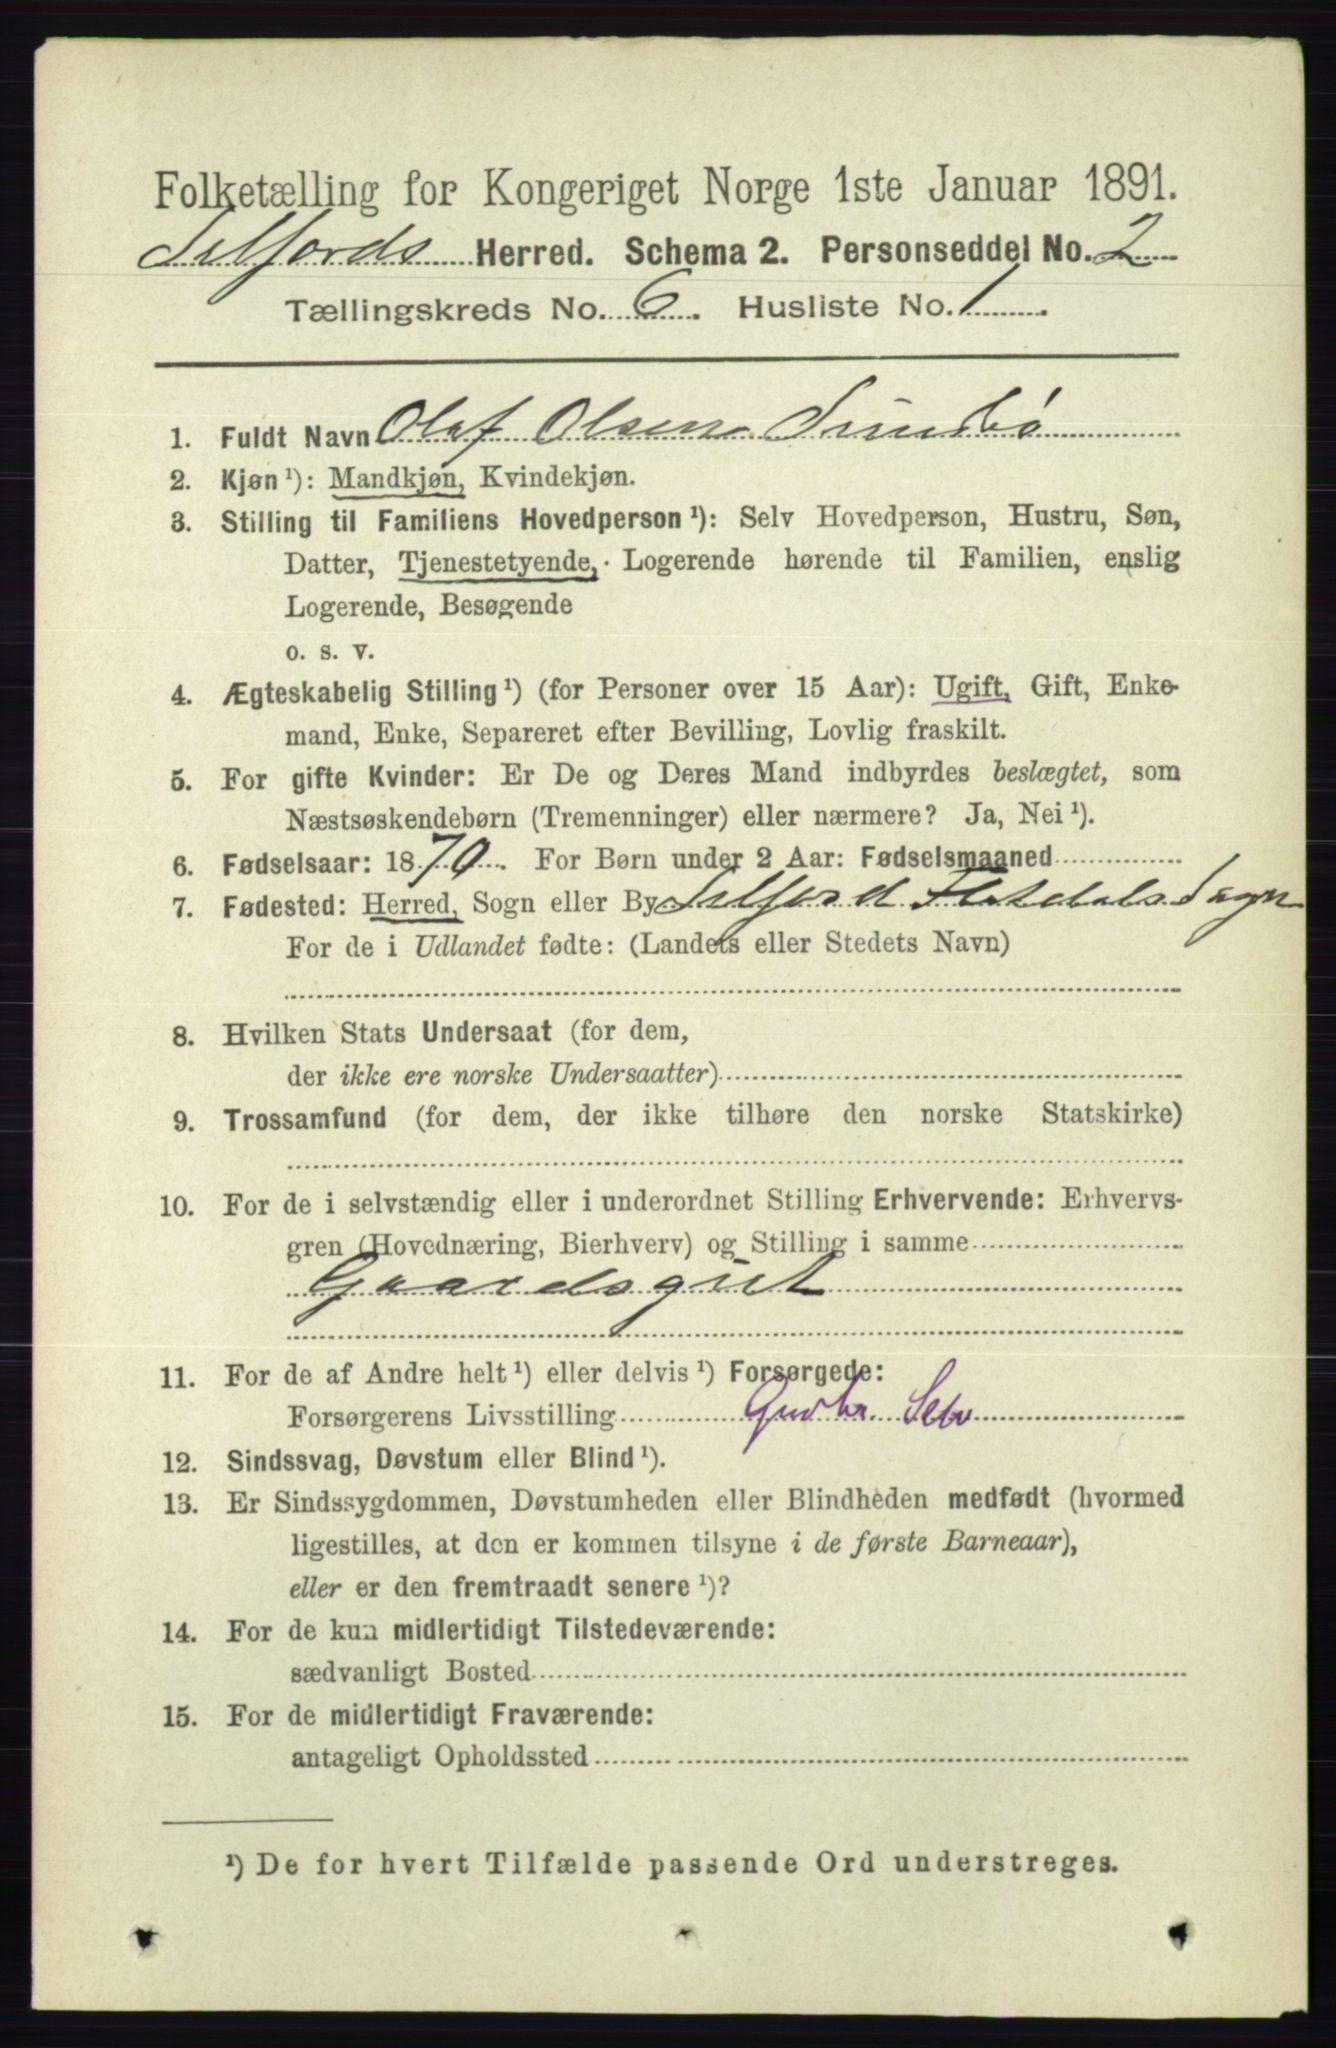 Folketælling for Kongeriget Norge 1ste Januar 1891.
Selfjords Herred. Schema 2. Personseddel No. 2
Tællingskreds No. 6. Husliste No. 1.
1. Fuldt Navn Olaf Olsen Sundbø
2. Kjøn¹): Mandkjøn, Kvindekjøn.
3. Stilling til Familiens Hovedperson¹): Selv Hovedperson, Hustru, Søn,
Datter, Tjenestetyende, Logerende hørende til Familien, enslig
Logerende, Besøgende
o. s. v.
4. Ægteskabelig Stilling¹) (for Personer over 15 Aar): Ugift, Gift, Enke-
mand, Enke, Separeret efter Bevilling, Lovlig fraskilt.
5. For gifte Kvinder: Er De og Deres Mand indbyrdes beslægtet, som
Næstsøskendebørn (Tremenninger) eller nærmere? Ja, Nei¹).
6. Fødselsaar: 1870. For Børn under 2 Aar: Fødselsmaaned
7. Fødested: Herred, Sogn eller By Selfjord Flatdals Sogn
For de i Udlandet fødte: (Landets eller Stedets Navn)
8. Hvilken Stats Undersaat (for dem,
der ikke ere norske Undersaatter)
9. Trossamfund (for dem, der ikke tilhøre den norske Statskirke)
10. For de i selvstændig eller i underordnet Stilling Erhvervende: Erhvervs-
gren (Hovednæring, Bierhverv) og Stilling i samme
Gaardsgut
11. For de af Andre helt¹) eller delvis¹) Forsørgede:
Forsørgerens Livsstilling Gmdbr. Selv
12. Sindssvag, Døvstum eller Blind¹).
13. Er Sindssygdommen, Døvstumheden eller Blindheden medfødt (hvormed
ligestilles, at den er kommen tilsyne i de første Barneaar),
eller er den fremtraadt senere¹)?
14. For de kun midlertidigt Tilstedeværende:
sædvanligt Bosted
15. For de midlertidigt Fraværende:
antageligt Opholdssted
¹) De for hvert Tilfælde passende Ord understreges.